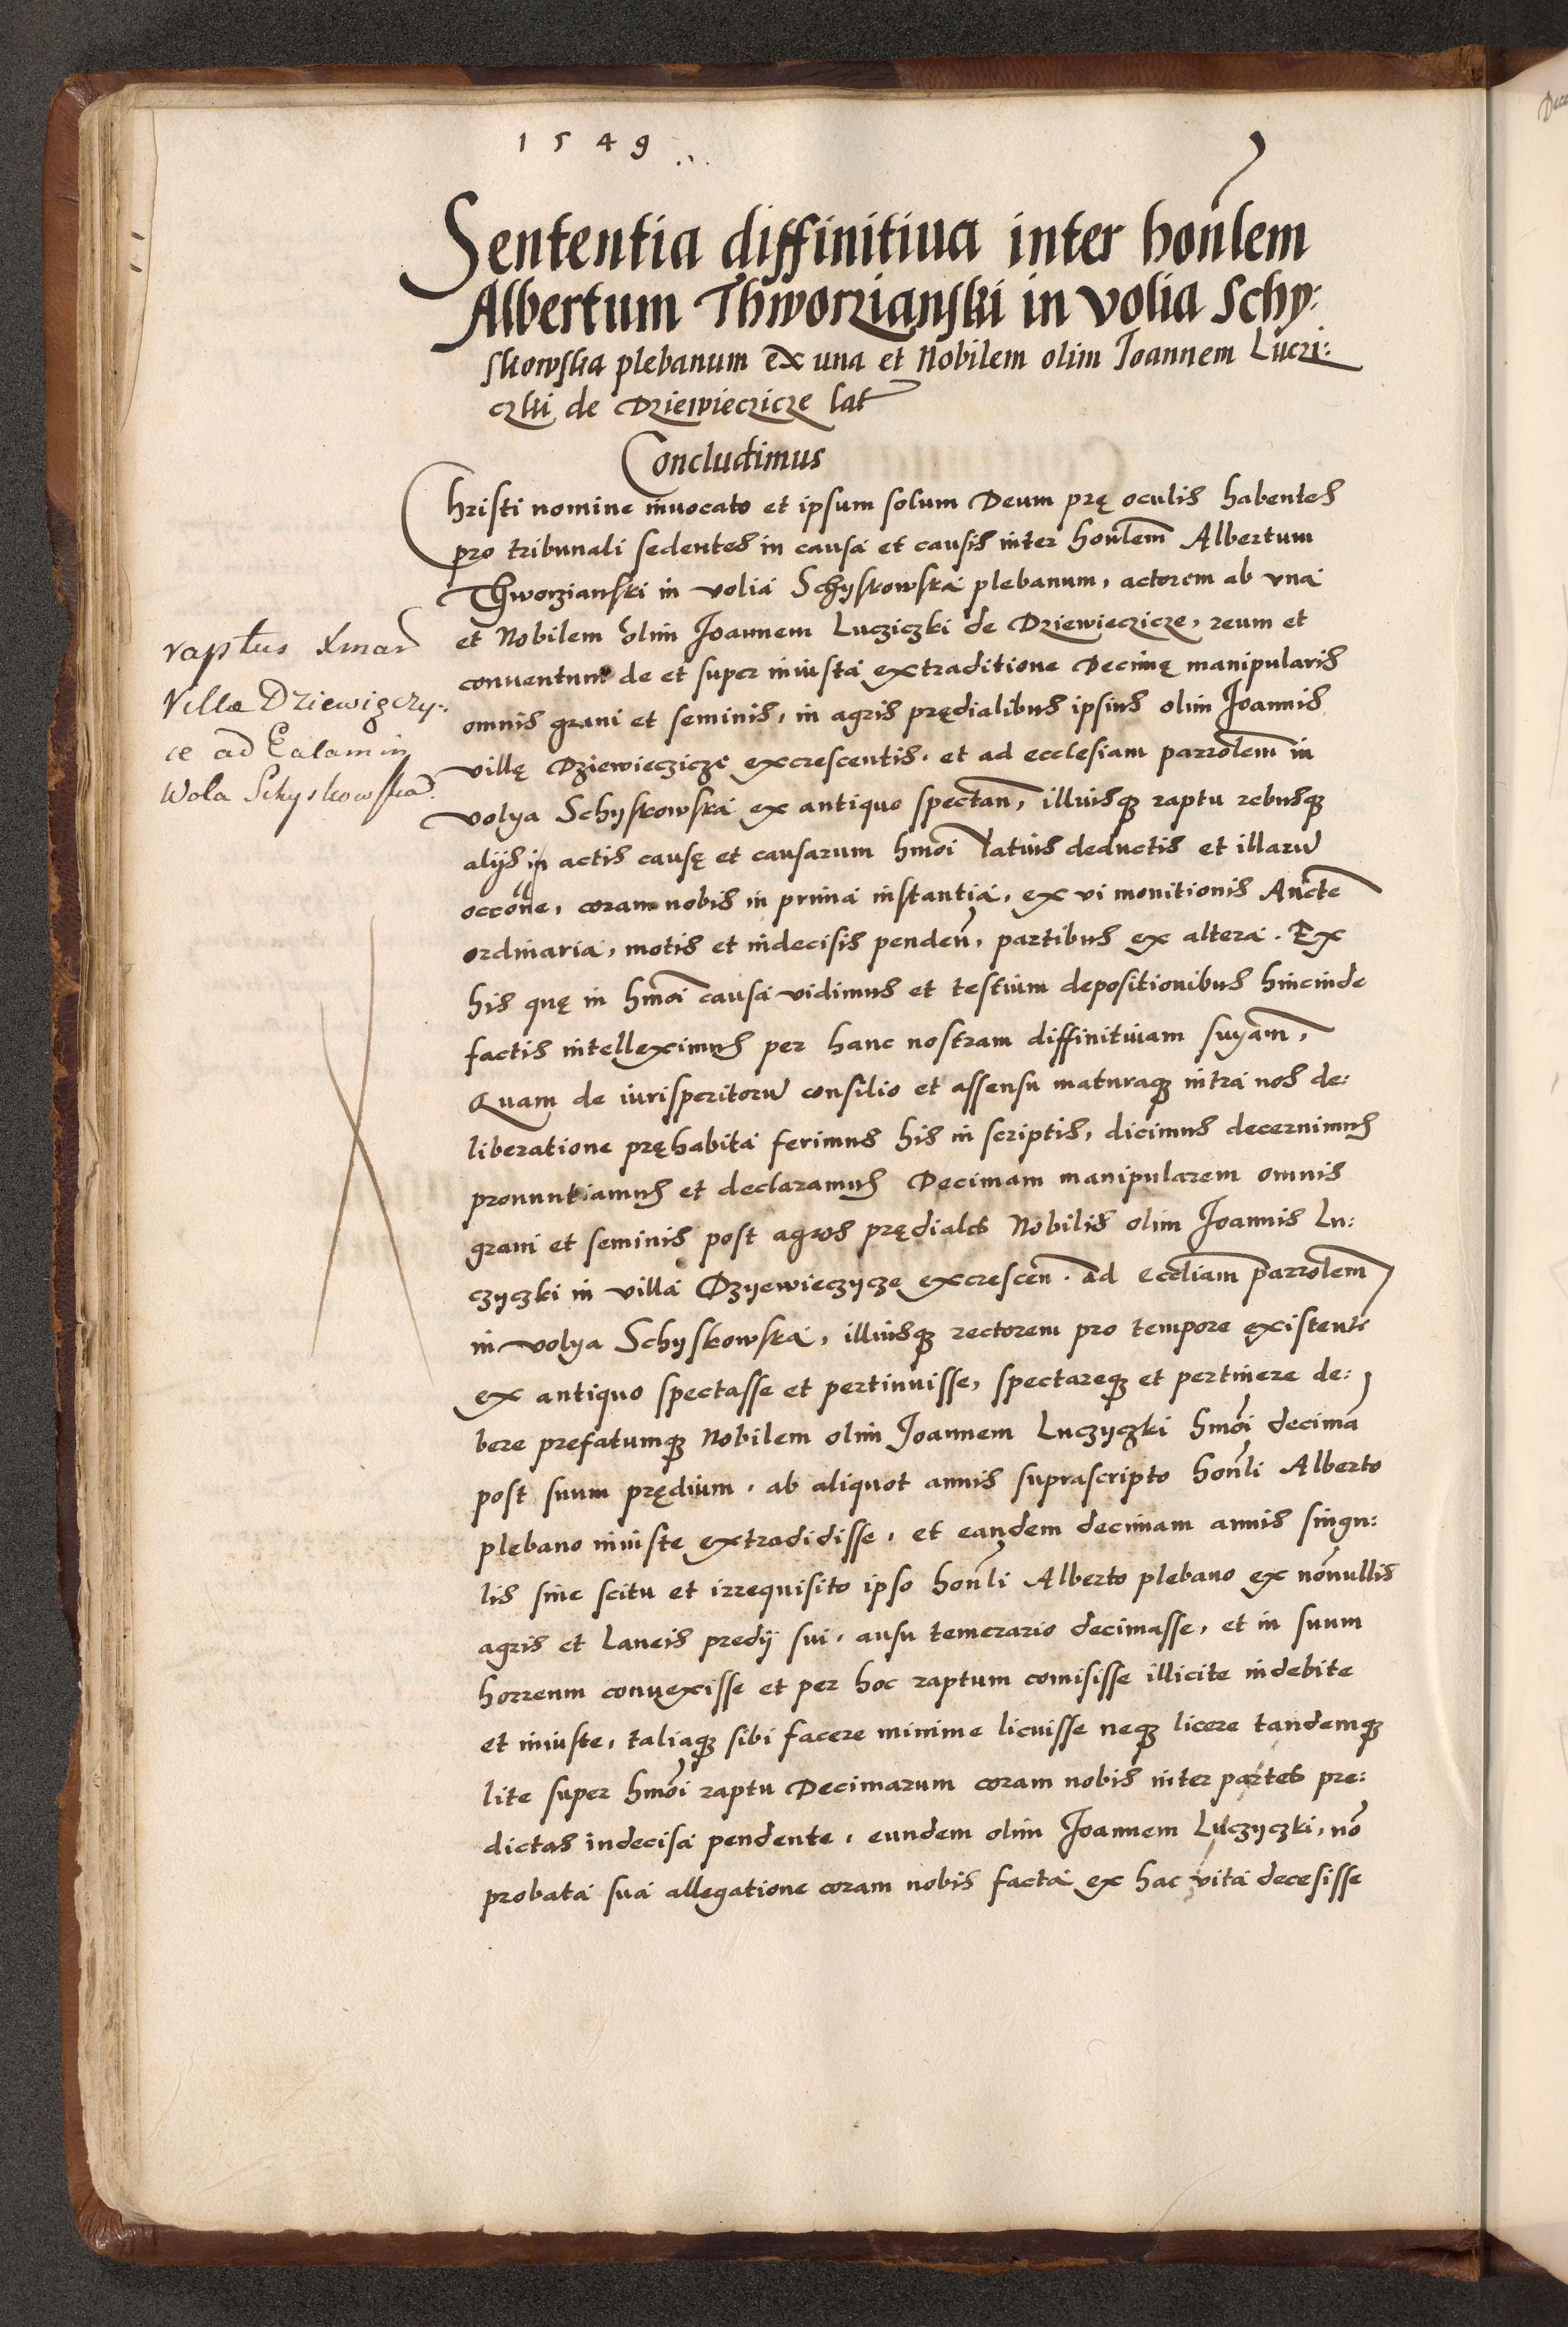 1549
Sententia diffinitiua inter hon̄lem
Albertum Thworzianski in volia Schy:
skowska plebanum ex una et Nobilem olim Joannem Luczi:
czki de Dziewieczicze lat
Concludimus
Christi nomine inuocato et ipsum solum Deum prę oculis habentes
pro tribunali sedentes in causa et causis inter hon̄lem Albertum
Thworzianski in volia Schyskowska plebanum, actorem ab vna
et Nobilem olim Joannem Lucziczki de Dziewieczicze, reum et
conuentum de et super iniusta extraditione Decimę manipularis
omnis grani et seminis, in agris prędialibus ipsius olim Joannis
villę Dziewieczicze excrescentis, et ad ecclesiam parrolem̄ in
volya Schyskowska ex antiquo spectan̄, illiusq; raptu rebusq;
alijs in actis causę et causarum hmōi latius deductis et illarū
occōne, coram nobis in prima instantia, ex vi monitionis Aucte
ordinaria, motis et indecisis penden̄, partibus ex altera. Ex
his quę in hmōi causa vidimus et testium depositionibus hincinde
factis intelleximus per hanc nostram diffinitiuam sn̄iam,
Quam de iurisperitorū consilio et assensu maturaq; intra nos de:
liberatione pręhabita ferimus his in scriptis, dicimus decernimus
pronuntiamus et declaramus Decimam manipularem omnis
grani et seminis post agros prędiales Nobilis olim Joannis Lu:
czyczki in villa Dzyewieczycze excrescen̄. ad eccliam̄ parrolem̄
in volya Schyskowska, illiusq; rectorem pro tempore existentē
ex antiquo spectasse et pertinuisse, spectareq; et pertinere de:
bere prefatumq; Nobilem olim Joannem Luczyczki hmōi decimā
post suum prędium, ab aliquot annis suprascripto hon̄li Alberto
plebano iniuste extradidisse, et eandem decimam annis singu:
lis sine scitu et irrequisito ipso hon̄li Alberto plebano ex nōnullis
agris et laneis predij sui, ausu temerario decimasse, et in suum
horreum conuexisse et per hoc raptum comisisse illicite indebite
et iniuste, taliaq; sibi facere minime licuisse neq; licere tandemq;
lite super hmōi raptu Decimarum coram nobis inter partes pre:
dictas indecisa pendente, eundem olim Joannem Luczyczki, nō
probata sua allegatione coram nobis facta ex hac vita decesisse
raptus Xmar̄
Villa Dziewięczy:
ce ad Ecclam in
Wola Schyskowska.